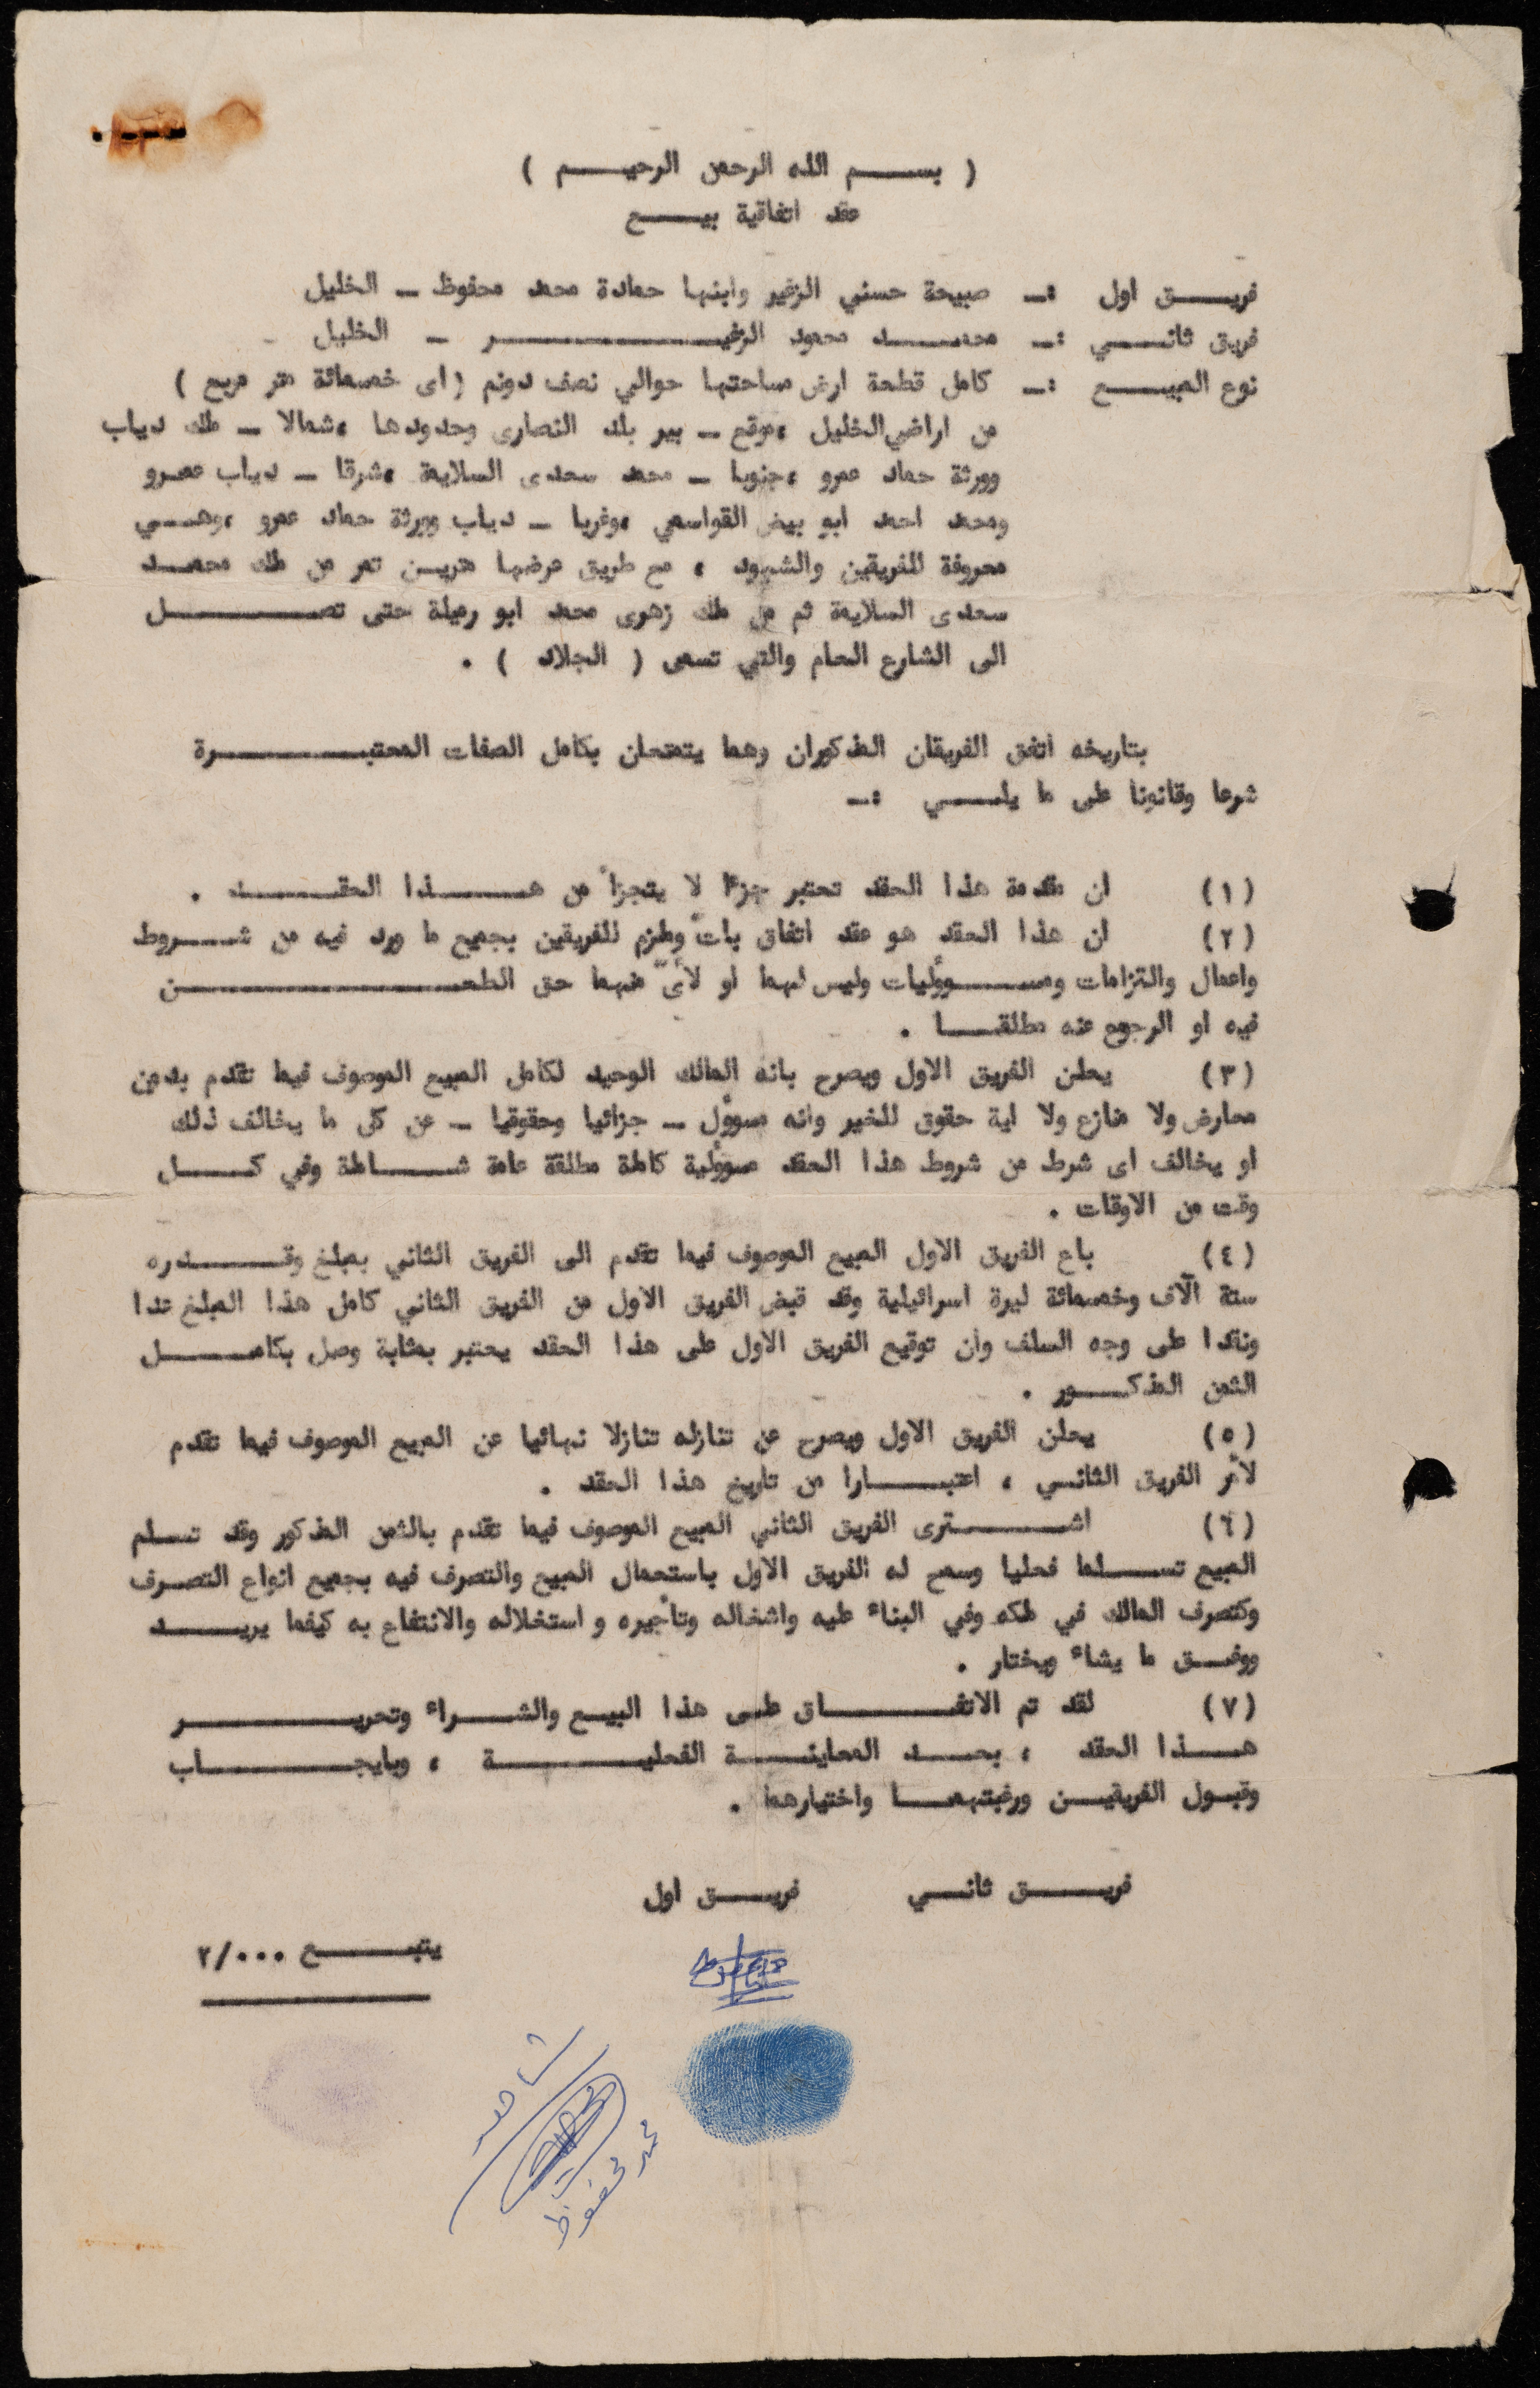 ( بسم الله الرحمن الرحيم )
عقد اتفاقية بيع
فريق اول :ـ صبيحة حسني الزغير وابنها حمادة محمد محفوظ ـ الخليل
فريق ثاني :ـ محمد محمود الزغير ـ الخليل
نوع المبيع :ـ كامل قطعة ارض مساحتها حوالي نصف دونم (اى خمسمائة متر مربع )
من اراضي الخليل ،موقع ـ بير بلد النصارى وحدودها ،شمالا ـ ملك دياب
وورثة حماد عمرو ،جنوبا ـ محمد سعدى السلايمة ،شرقا ـ دياب عمرو
ومحمد احمد ابو بيض القواسمي ،وغربا ـ دياب وورثة حماد عمرو ،وهي
معروفة للفريقين والشهود ، مع طريق عرضها مترين تمر من ملك محمد
سعدى السلايمة ثم من ملك زهوى محمد ابو رميلة حتى تصل
الى الشارع العام والتي تسمى ( الجلاد ) .
بتاريخه اتفق الفريقان المذكوران وهما يتمتعان بكامل الصفات المعتبرة
شرعا وقانونا على ما يلي :ـ
(١) ان مقدمة هذا العقد تعتبر جزءا لا يتجزأ من هذا العقد .
(٢) ان هذا العقد هو عقد اتفاق باتّ وملزم للفريقين بجميع ما ورد فيه من شروط
واعمال والتزامات ومسوؤليات وليس لهما او لأىّ منهما حق الطعن
فيه او الرجوع عنه مطلقا .
(٣) يعلن الفريق الاول ويصرح بانه المالك الوحيد لكامل المبيع الموصوف فيما تقدم بدون
معارض ولا منازع ولا اية حقوق للغير وانه مسوؤل ـ جزائيا وحقوقيا ـ عن كل ما يخالف ذلك
او يخالف اى شرط من شروط هذا العقد مسوؤلية كاملة مطلقة عامة شاملة وفي كل
وقت من الاوقات .
(٤) باع الفريق الاول المبيع الموصوف فيما تقدم الى الفريق الثاني بمبلغ وقدره
ستة آلاف وخمسمائة ليرة اسرائيلية وقد قبض الفريق الاول من الفريق الثاني كامل هذا المبلغ عدا
ونقدا على وجه السلف وان توقيع الفريق الاول على هذا العقد يعتبر بمثابة وصل بكامل
الثمن المذكور .
(٥) يعلن الفريق الاول ويصرح عن تنازله تنازلا نهائيا عن المبيع الموصوف فيما تقدم
لأمر الفريق الثاني ، اعتبارا من تاريخ هذا العقد .
(٦) اشترى الفريق الثاني المبيع الموصوف فيما تقدم بالثمن المذكور وقد تسلم
المبيع تسلما فعليا وسمح له الفريق الاول باستعمال المبيع والتصرف فيه بجميع انواع التصرف
وكتصرف المالك في ملكه وفي البناء عليه واشغاله وتأجيره و استغلاله والانتفاع به كيفما يريد
ووفق ما يشاء ويختار .
(٧) لقد تم الاتفاق على هذا البيع والشراء وتحرير
هذا العقد ، بعد المعاينة الفعلية ، وبايجاب
وقبول الفريقين ورغبتهما واختيارهما .
فريق ثاني فريق اول
يتبع ٢/٠٠٠
شاهد
محمد محفوظ